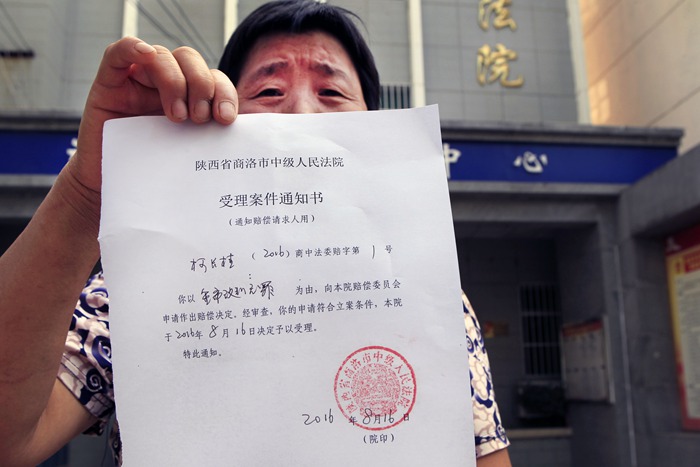 法
院
中
心
陕西省商洛市中级人民法院
受理案件通知书
（通知赔偿请求人用）
（2016）商中法委赔字第 1 号
你以 再审改判无罪 为由，向本院赔偿委员会
申请作出赔偿决定。经审查，你的申请符合立案条件，本院
于2016年 8 月 16日决定予以受理。
特此通知。
陕西省商洛市中级人民法院
2016 年 8月16日
（院印）